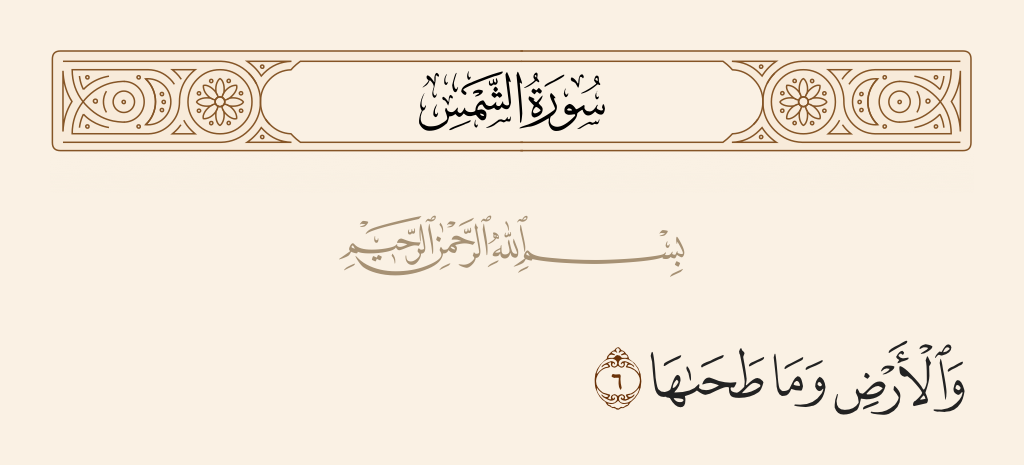 سُورَةُ الشَّمْسِ
بِسْمِ ٱللَّهِ ٱلرَّحْمَٰنِ ٱلرَّحِيمِ
وَٱلْأَرْضِ وَمَا طَحَىٰهَا ٦